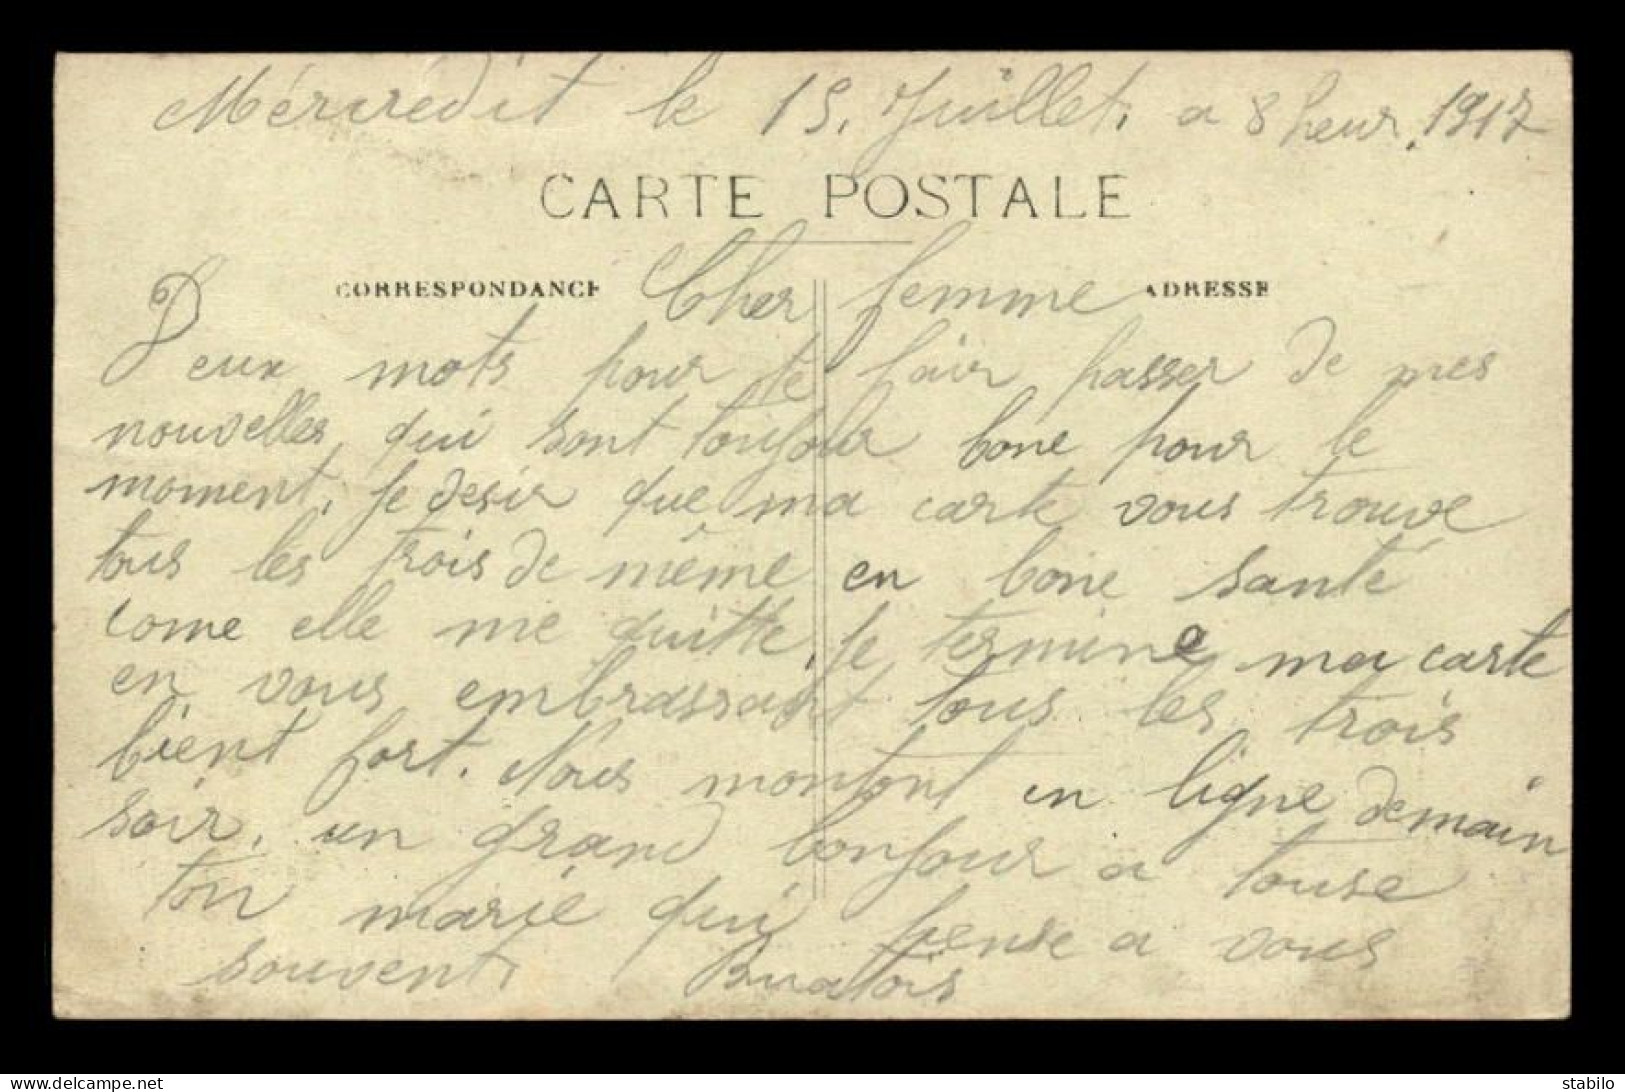 Mércredit le 15. Juillet. a 8 heur. 1917
CARTE POSTALE
CORRESPONDANCE
ADRESSE
Cher femme
Deux mots pour te fair passer de mes
nouvelles qui sont toujour bone pour le
moment. je desir que ma carte vous trouve
tous les trois de même en bone santé
come elle me quitte. je termine ma carte
en vous embrassant tous les trois
bient fort. Nous montont en ligne demain
soir. un grand bonjour a touse
ton marie qui pense a vous
souvent
delcampe.net
stabilo